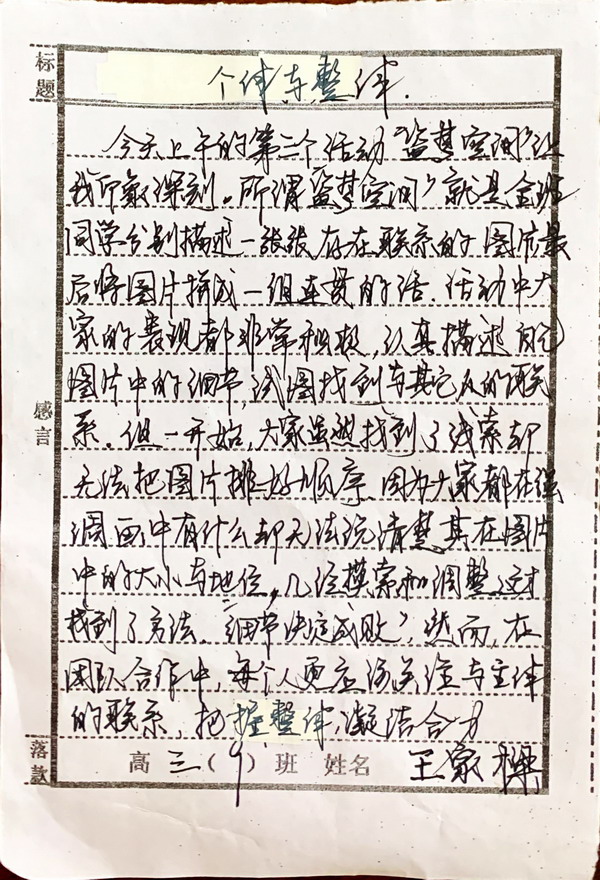 标题
个体与整体.
今天上午的第二个活动“盗梦空间”让
我印象深刻。所谓“盗梦空间”就是全班
同学分别描述一张张存在联系的图片最
后将图片拼成一组连贯的话.活动中大
家的表现都非常积极,认真描述自己
图片中的细节,试图找到与其它人的联
系.但一开始,大家虽然找到了线索却
无法把图片排好顺序.因为大家都在强
调画中有什么却无法说清楚其在图片
中的大小与地位,几经摸索和调整这才
找到了方法.“细节决定成败”,然而,在
团队合作中,每个人更应该关注与主体
的联系,把握整体,凝结合力
感言
落款
高三(9)班 姓名 王家